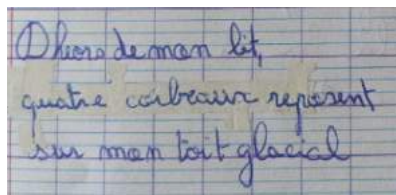 Dhors de mon lit,
quatre corbeaux reposent
sur mon toit glacial